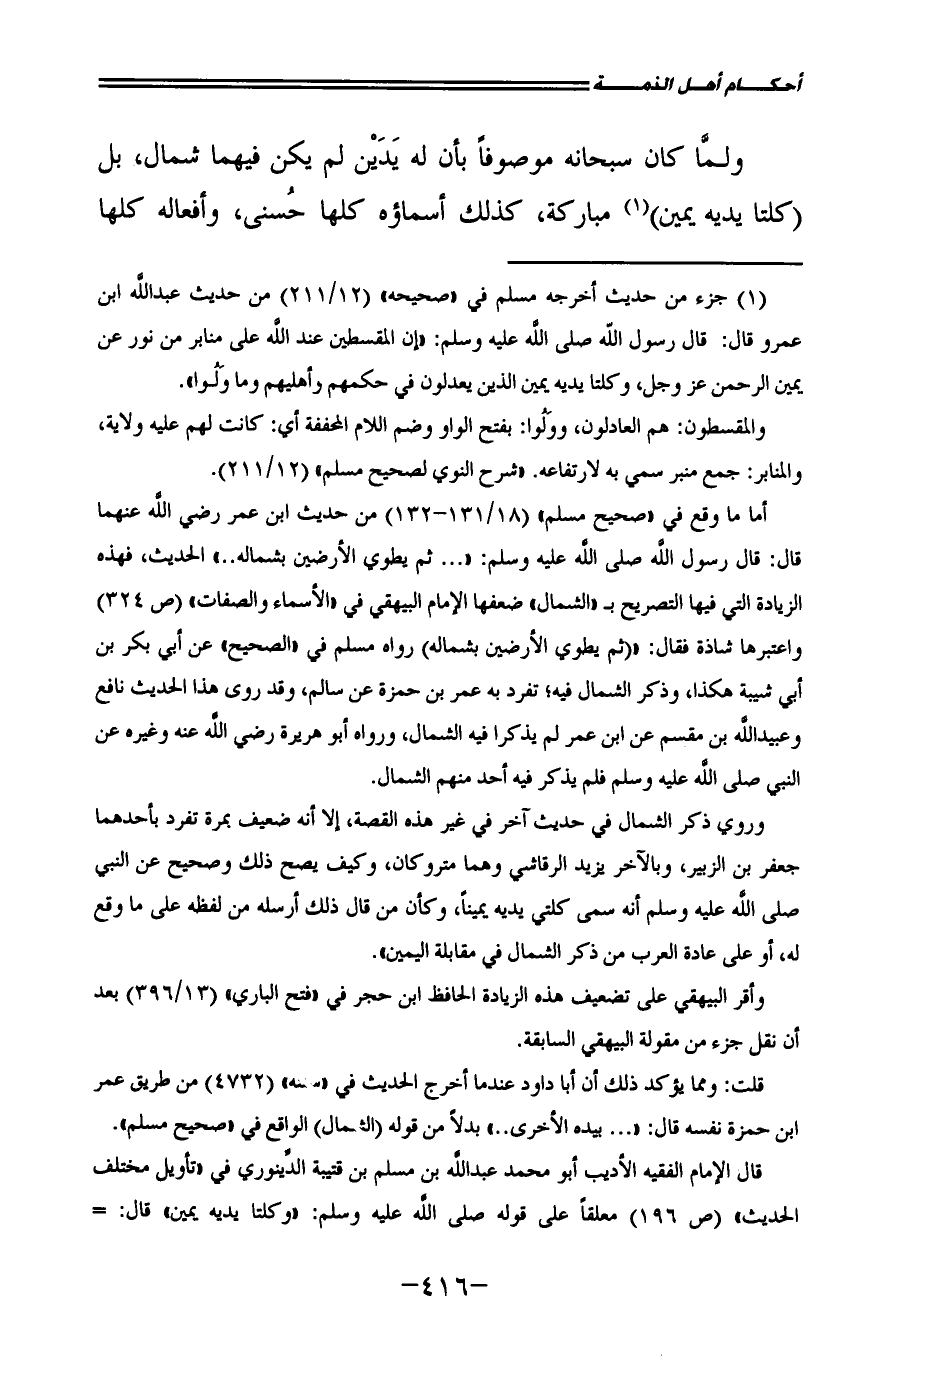 أحكـــام أهـل الذمـــة
ولـمَّا كان سبحانه موصوفاً بأن له يَدَيْن لم يكن فيهما شمال، بل
(كلتا يديه يمين)(١) مباركة، كذلك أسماؤه كلها حُسنى، وأفعاله كلها
(١) جزء من حديث أخرجه مسلم في «صحيحه» (٢١١/١٢) من حديث عبدالله ابن
عمرو قال: قال رسول الله صلى الله عليه وسلم: «إن المقسطين عند الله على منابر من نور عن
يمين الرحمن عز وجل، وكلتا يديه يمين الذين يعدلون في حكمهم وأهليهم وما ولُـوا».
والمقسطون: هم العادلون، وولُوا: بفتح الواو وضم اللام المخففة أي: كانت لهم عليه ولاية،
والمنابر: جمع منبر سمي به لارتفاعه. «شرح النوي لصحيح مسلم» (٢١١/١٢).
أما ما وقع في «صحيح مسلم» (١٣١/١٨–١٣٢) من حديث ابن عمر رضي الله عنهما
قال: قال رسول الله صلى الله عليه وسلم: «... ثم يطوي الأرضين بشماله..» الحديث، فهذه
الزيادة التي فيها التصريح بـ «الشمال» ضعفها الإمام البيهقي في «الأسماء والصفات» (ص ٣٢٤)
واعتبرها شاذة فقال: «(ثم يطوي الأرضين بشماله) رواه مسلم في «الصحيح» عن أبي بكر بن
أبي شيبة هكذا، وذكر الشمال فيه؛ تفرد به عمر بن حمزة عن سالم، وقد روى هذا الحديث نافع
وعبيدالله بن مقسم عن ابن عمر لم يذكرا فيه الشمال، ورواه أبو هريرة رضي الله عنه وغيره عن
النبي صلى الله عليه وسلم فلم يذكر فيه أحد منهم الشمال.
وروي ذكر الشمال في حديث آخر في غير هذه القصة، إلا أنه ضعيف بمرة تفرد بأحدهما
جعفر بن الزبير، وبالآخر يزيد الرقاشي وهما متروكان، وكيف يصح ذلك وصحيح عن النبي
صلى الله عليه وسلم أنه سمى كلتي يديه يميناً، وكأن من قال ذلك أرسله من لفظه على ما وقع
له، أو على عادة العرب من ذكر الشمال في مقابلة اليمين».
وأقر البيهقي على تضعيف هذه الزيادة الحافظ ابن حجر في «فتح الباري» (٣٩٦/١٣) بعد
أن نقل جزء من مقولة البيهقي السابقة.
قلت: ومما يؤكد ذلك أن أبا داود عندما أخرج الحديث في (٤٧٣٢) من طريق عمر
ابن حمزة نفسه قال: «... بيده الأخرى..» بدلاً من قوله (الشمال) الواقع في «صحيح مسلم».
قال الإمام الفقيه الأديب أبو محمد عبدالله بن مسلم بن قتيبة الدِّينوري في «تأويل مختلف
الحديث» (ص ١٩٦) معلقاً على قوله صلى الله عليه وسلم: «وكلتا يديه يمين» قال: =
–٤١٦–